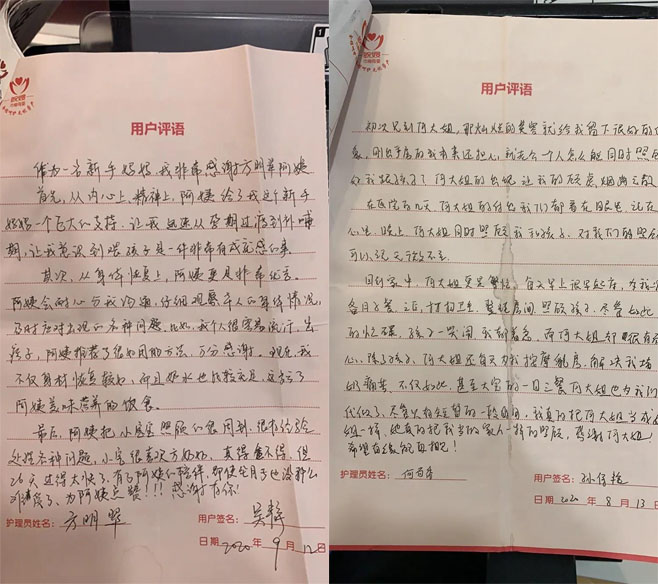 用户评语
作为一名新手妈妈,我非常感谢方明翠阿姨
首先,从内心上,精神上,阿姨给了我这个新手
妈妈一个巨大的支持,让我迅速从孕期过渡到哺
期,让我意识到喂孩子是一件非常有成就感的事
其次,从身体恢复上,阿姨更是非常优秀。
阿姨会耐心与我沟通,仔细观察本人的身体情况,
及时应对出现的各种问题,比如,我个人很容易
孩子,阿姨推荐了很多的方法,万分感谢。现在我
不仅身材恢复较好,而且奶水也比较充足,这
阿姨美味营养的饮食。
最后,阿姨把小宝宝照顾的很周到,很有经验
处理各种问题,小宝很喜欢方妈妈,真得舍不得,但
26天过得太快了,有了阿姨的陪伴,即使坐月子也没那么
了,为阿姨点赞!!!感谢有你!
护理员姓名: 方明翠
用户签名: 吴静
日期 2020 年 9 月 12
用户评语
初次见到何大姐,那灿烂的笑容就给我留下很好的印
象,刚出产房的我本来还担心,就光一个人怎么能同时照
好我跟孩子了,何大姐的出现让我的顾虑烟消云散
在医院的几天,何大姐的付出我们都看在眼里,记在
心里。晚上,何大姐同时照顾我和孩子,对我们的照
可以说无微不至。
回到家中,何大姐更是繁忙,每天早上很早起床,为我
备月子餐,之后,打扫卫生,整理房间,照顾孩子,尽管如此
的忙碌,孩子一哭闹,我都着急,而何大姐却很有
心。除了孩子,何大姐还每天为我按摩乳房,解决我堵
奶痛苦,不仅如此,甚至大宝的一日三餐何大姐也为我
代做了,尽管只有短暂的一段日子,我真的把何大姐当成
姐一样,她真的把我当做家人一样的照顾,感谢何大姐!
希望有缘能再相聚!
护理员姓名:
用户签名:
日期 2020 年 8 月 13 日